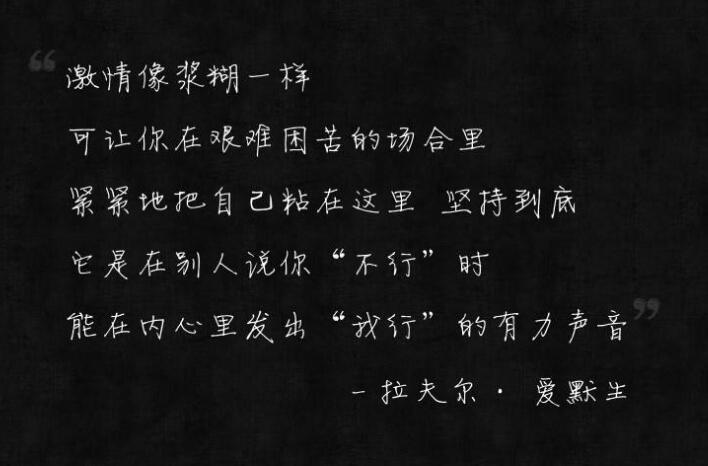 “激情像浆糊一样
可让你在艰难困苦的场合里
紧紧地把自己粘在这里 坚持到底
它是在别人说你“不行”时
能在内心里发出“我行”的有力声音”
– 拉夫尔 · 爱默生